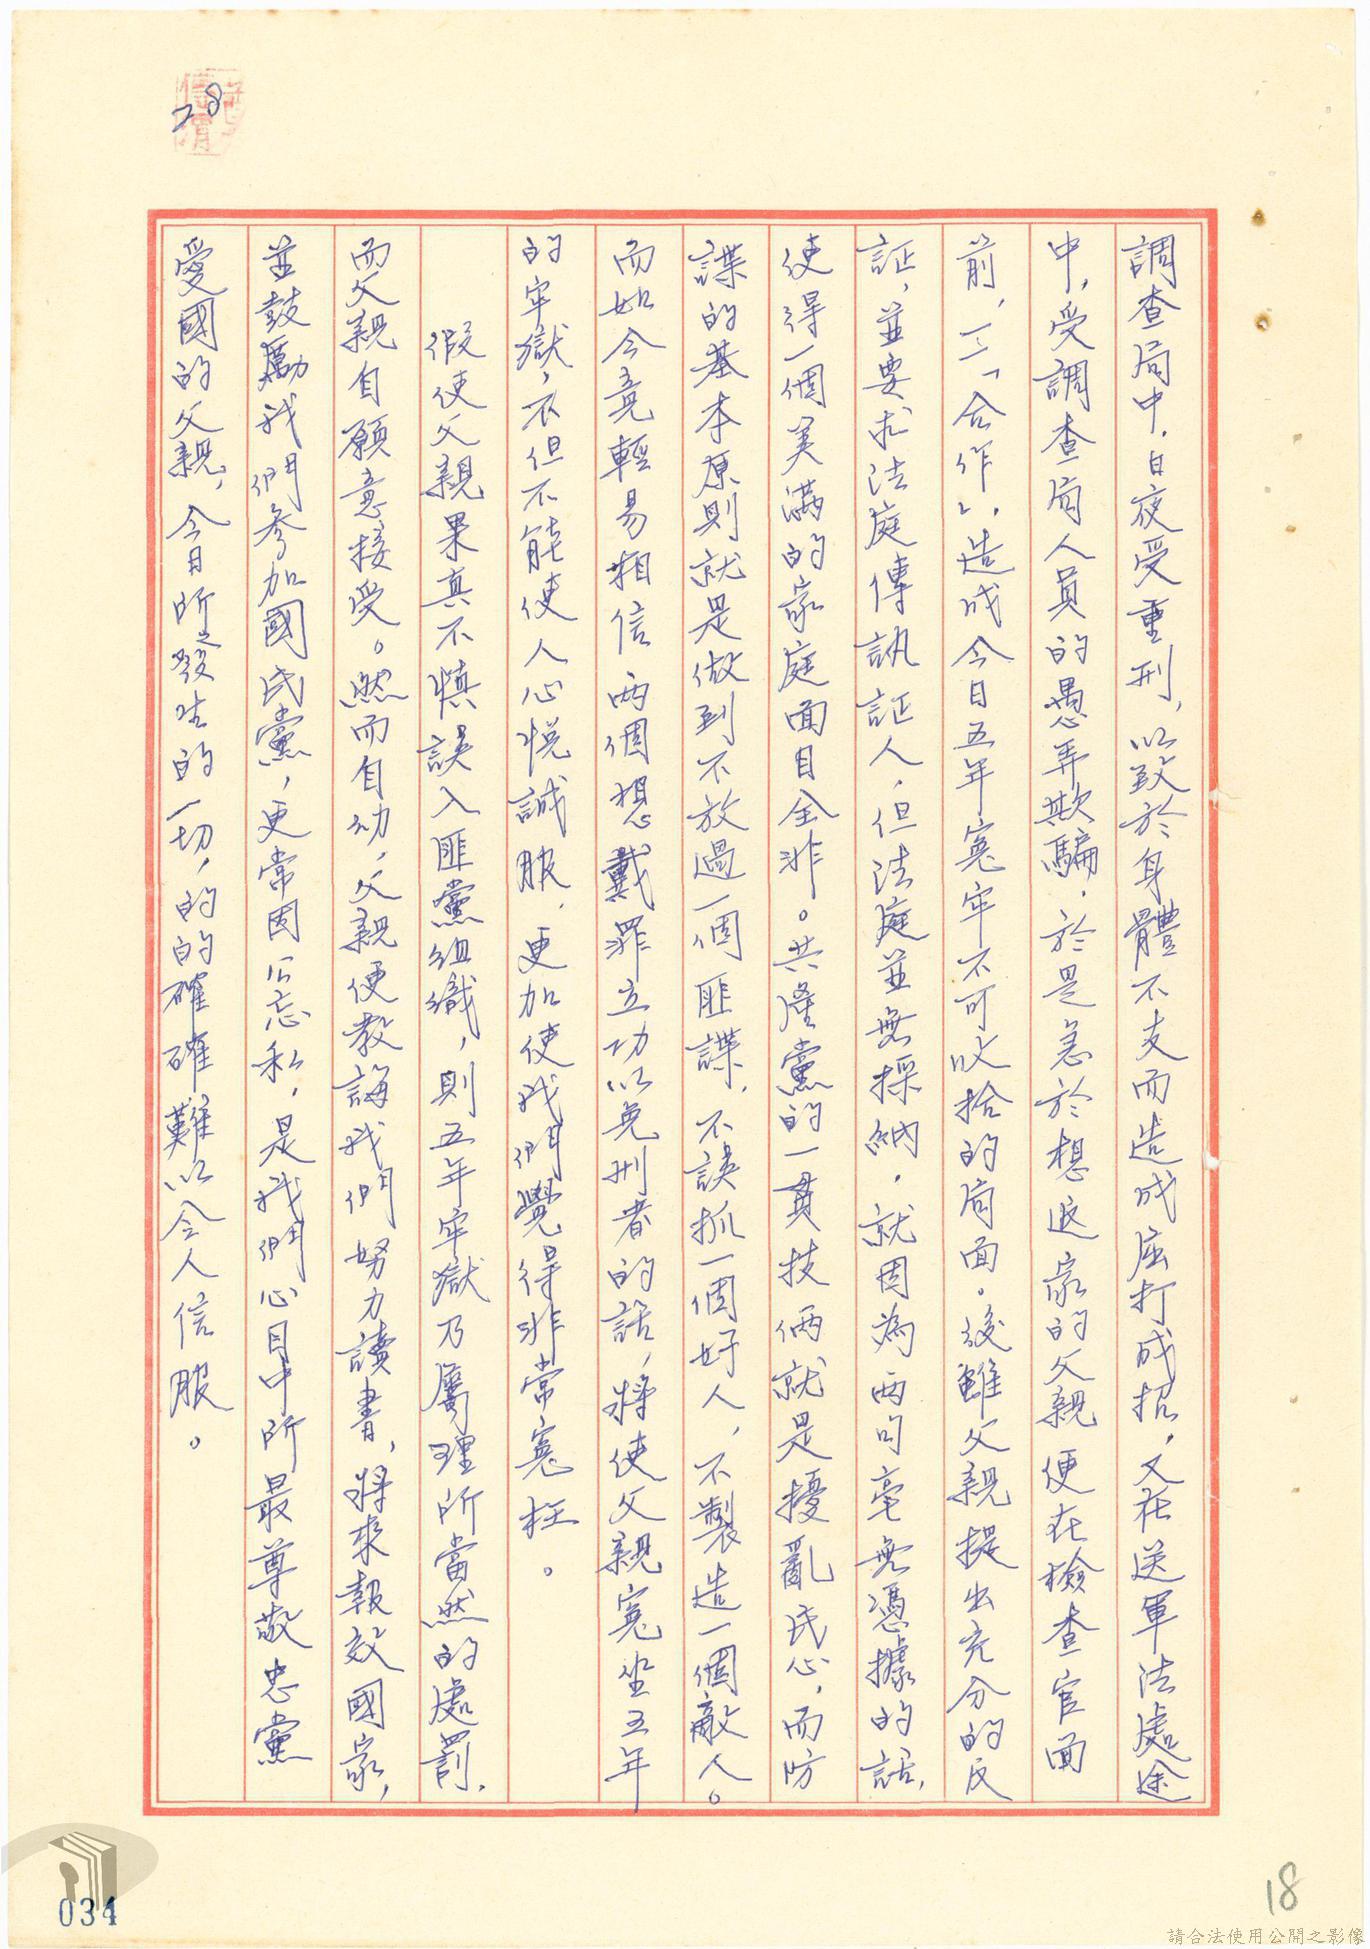 28
調查局中，日夜受重刑，以致於身體不支而造成屈打成招，又在送軍法處途
中，受調查局人員的愚弄欺騙，於是急於想返家的父親便在檢查官面
前，一一「合作」，造成今日五年冤牢不可收拾的局面。後雖父親提出充分的反
証，並要求法庭傳訊証人，但法庭並無採納，就因為兩句毫無憑據的話，
使得一個美滿的家庭面目全非。共產黨的一貫技倆就是擾亂民心，而防
諜的基本原則就是做到不放過一個匪諜，不誤抓一個好人，不製造一個敵人。
而如今竟輕易相信兩個想戴罪立功以免刑者的話，將使父親冤坐五年
的牢獄，不但不能使人心悅誠服，更加使我們覺得非常冤枉。
假使父親果真不慎誤入匪黨組織，則五年牢獄乃屬理所當然的處罰，
而父親自願意接受。然而自幼，父親便教誨我們努力讀書，將來報效國家，
並鼓勵我們參加國民黨，更常因公忘私，是我們心目中所最尊敬忠黨
愛國的父親，今日所發生的一切，的的確確難以令人信服。
034
18
請合法使用公開之影像